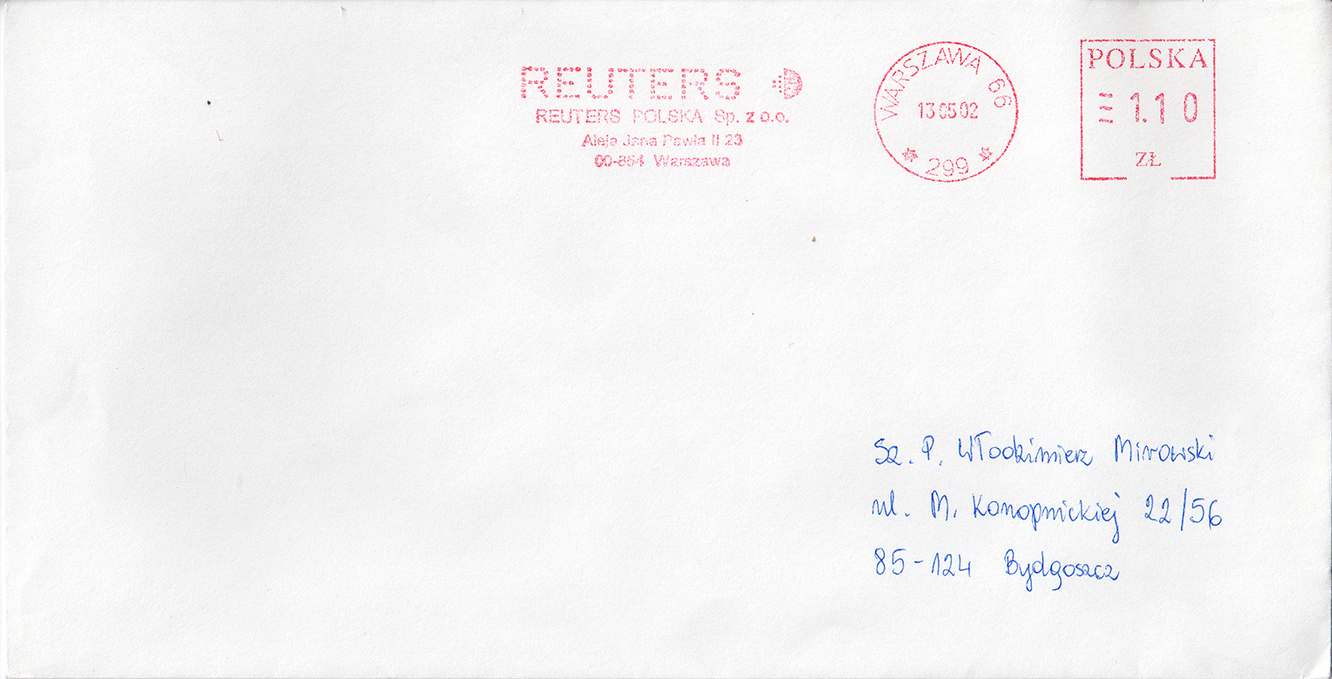 REUTERS
REUTERS POLSKA Sp. z o.o.
Aleja Jana Pawla II 23
00-854 Warszawa
WARSZAWA 66
13 05 02
* 299 *
POLSKA
1.10
ZŁ
Sz. P. Włodzimierz Mirowski
ul. M. Konopnickiej 22/56
85-124 Bydgoszcz